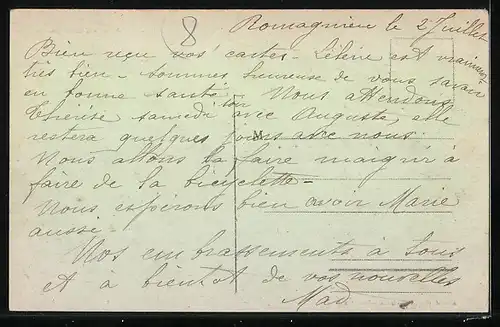 8
Romagnieu le 2 Juillet
Bien reçu vos cartes - l'tière est vraiment
très bien - sommes heureuse de vous savoir
en bonne santé - Nous attendons
Thérèse samedi avec Auguste, elle
restera quelques jours avec nous.
M
Nous allons la faire maigrir à
faire de la bicyclette -
Nous espérons bien avoir Marie
aussi
Nos embrassements à tous
et à bientôt de vos nouvelles
Mad